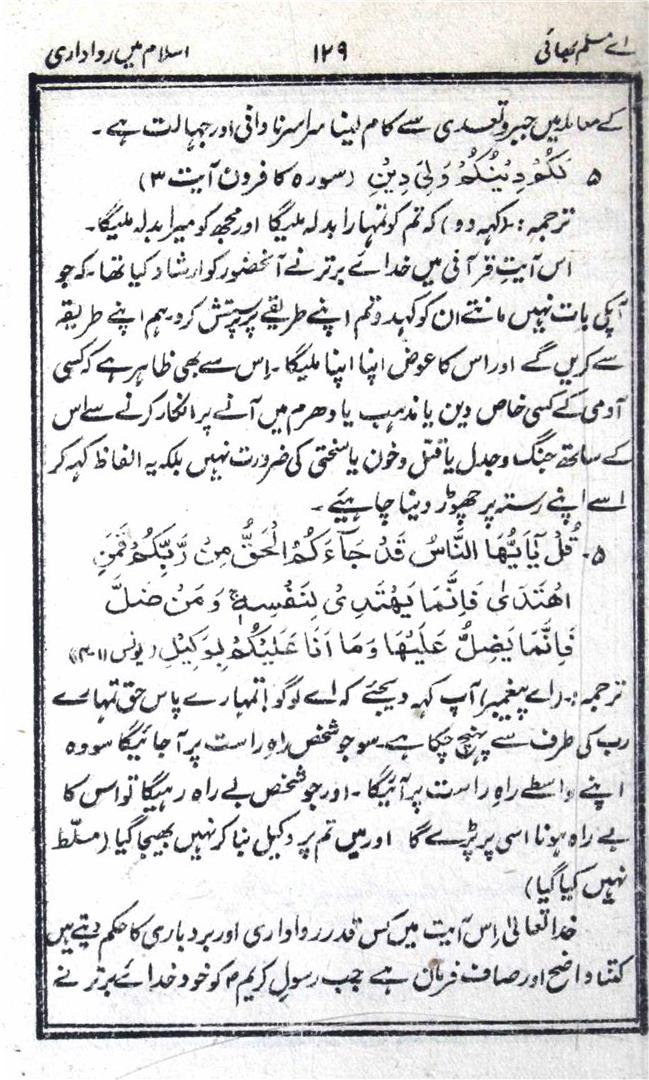 اے مسلم بھائی ۱۲۹ اسلام میں رواداری
کے معاملہ میں جبر و تعدی سے کام لینا سراسر ناوافی اور جہالت ہے۔
۵ لَكُمْ دِيْنُكُمْ وَلِيَ دِيْنِ (سورہ کافرون آیت ۳)
ترجمہ :۔ (کہہ دو) کہ تم کو تمہارا بدلہ ملیگا اور مجھ کو میرا بدلہ ملیگا۔
اس آیتِ قرآنی میں خدائے برتر نے آنحضور کو ارشاد کیا تھا۔ کہ جو
آپکی بات نہیں مانتے ان کو کہدو تم اپنے طریقے پر پرستش کرو۔ ہم اپنے طریقہ
سے کریں گے اور اس کا عوض اپنا اپنا ملیگا۔ اِس سے بھی ظاہر ہے کہ کسی
آدمی کے کسی خاص دین یا مذہب یا دھرم میں آنے پر انکار کرنے سے اس
کے ساتھ جنگ و جدل یا قتل و خون یا سختی کی ضرورت نہیں بلکہ یہ الفاظ کہہ کر
اسے اپنے رستہ پر چھوڑ دینا چاہئیے۔
۵۔ قُلْ يٰٓاَيُّهَا النَّاسُ قَدْ جَآءَكُمُ الْحَقُّ مِنْ رَّبِّكُمْ فَمَنِ
اهْتَدٰى فَاِنَّمَا يَهْتَدِىْ لِنَفْسِهٖ ۚ وَمَنْ ضَلَّ
فَاِنَّمَا يَضِلُّ عَلَيْهَا وَمَا اَنَا عَلَيْكُمْ بِوَكِيْلٍ (یونس
ترجمہ :۔ (اے پیغمبر) آپ کہہ دیجئے کہ اے لوگو! تمہارے پاس حق تمہارے
رب کی طرف سے پہنچ چکا ہے۔ سو جو شخص راہِ راست پر آجائیگا سو وہ
اپنے واسطے راہِ راست پر آئیگا۔ اور جو شخص بے راہ رہیگا تو اس کا
بے راہ ہونا اسی پر پڑے گا اور میں تم پر وکیل بنا کر نہیں بھیجا گیا (مسلّط
نہیں کیا گیا)
خدا تعالیٰ اِس آیت میں کس قدر رواداری اور بردباری کا حکم دیتے ہیں
کتنا واضح اور صاف فرمان ہے جب رسولِ کریم ﷺ کو خود خدائے برتر نے